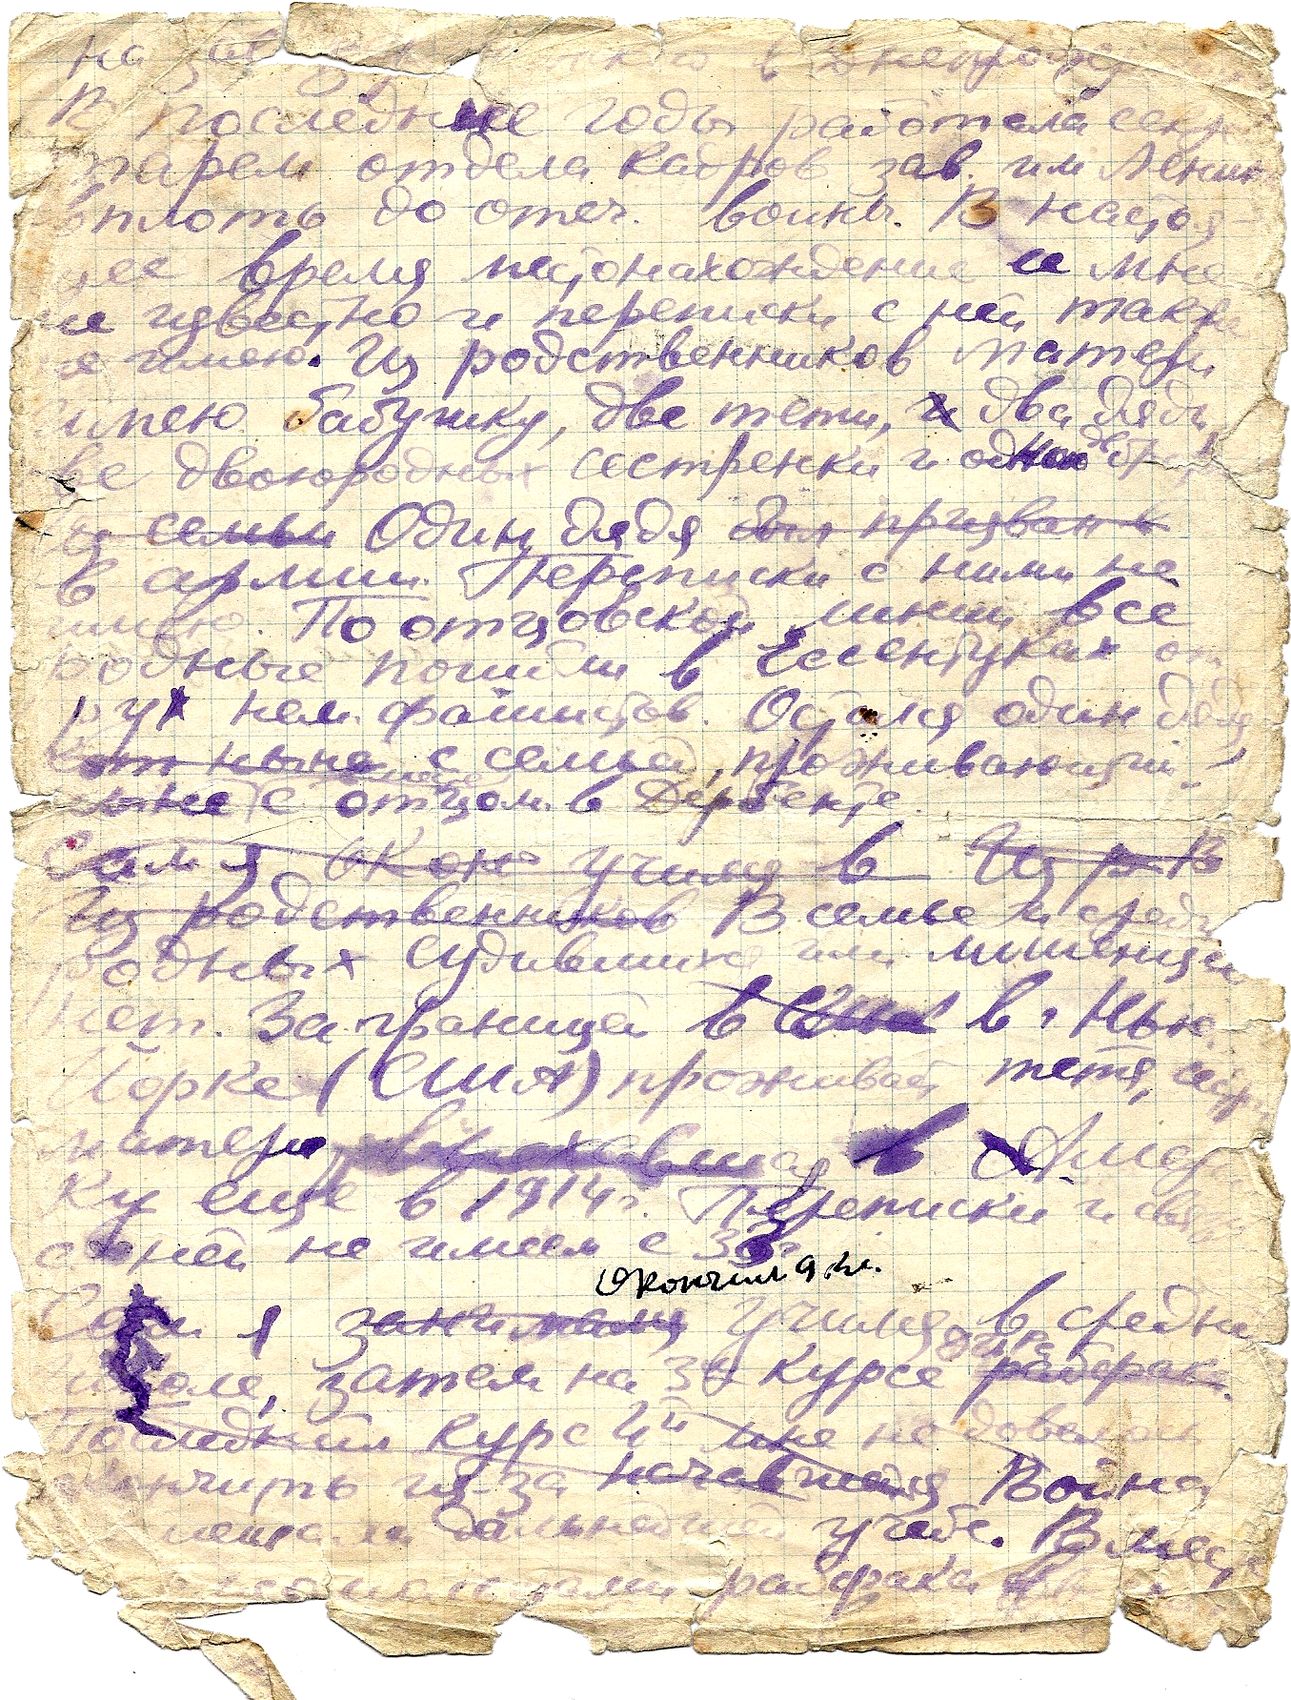 на в Днепропет
В последние годы работала секре
тарем отдела кадров зав. им Ленин
вплоть до отеч. войны. В настоя
щее время местонахождение и мне
не известно и переписки с ней также
не имею. Из родственников матери
имею бабушку, две тети, и два дяди
две двоюродных сестренки и одного
из семьи Один дядя был призван в
в армии. Переписки с ними не
имею. По отцовской линии все
родные погибли в Ессентуках от
рук нем. фашистов. Остался один дядя
с семьей, проживающий
ныне с отцом в Дербенте.
Сам я окон учился в Из р В
Из родственников В семье и среди
родных судившихся или лишенцев
нет. За границей в США в г Нью
Йорке (США) проживает тетя, сестра
матери, выехавшая в Амери
ку еще в 1914 г. Переписки и связи
с ней не имеем с 33 г
Окончил 9 кл.
Сам я занимался учился в средней
школе, затем на 3м курсе рабфака.
Последний курс мне не довелось
кончить из-за начавшейся Война
помешала дальнейшей учебе. Вмес
рабфака